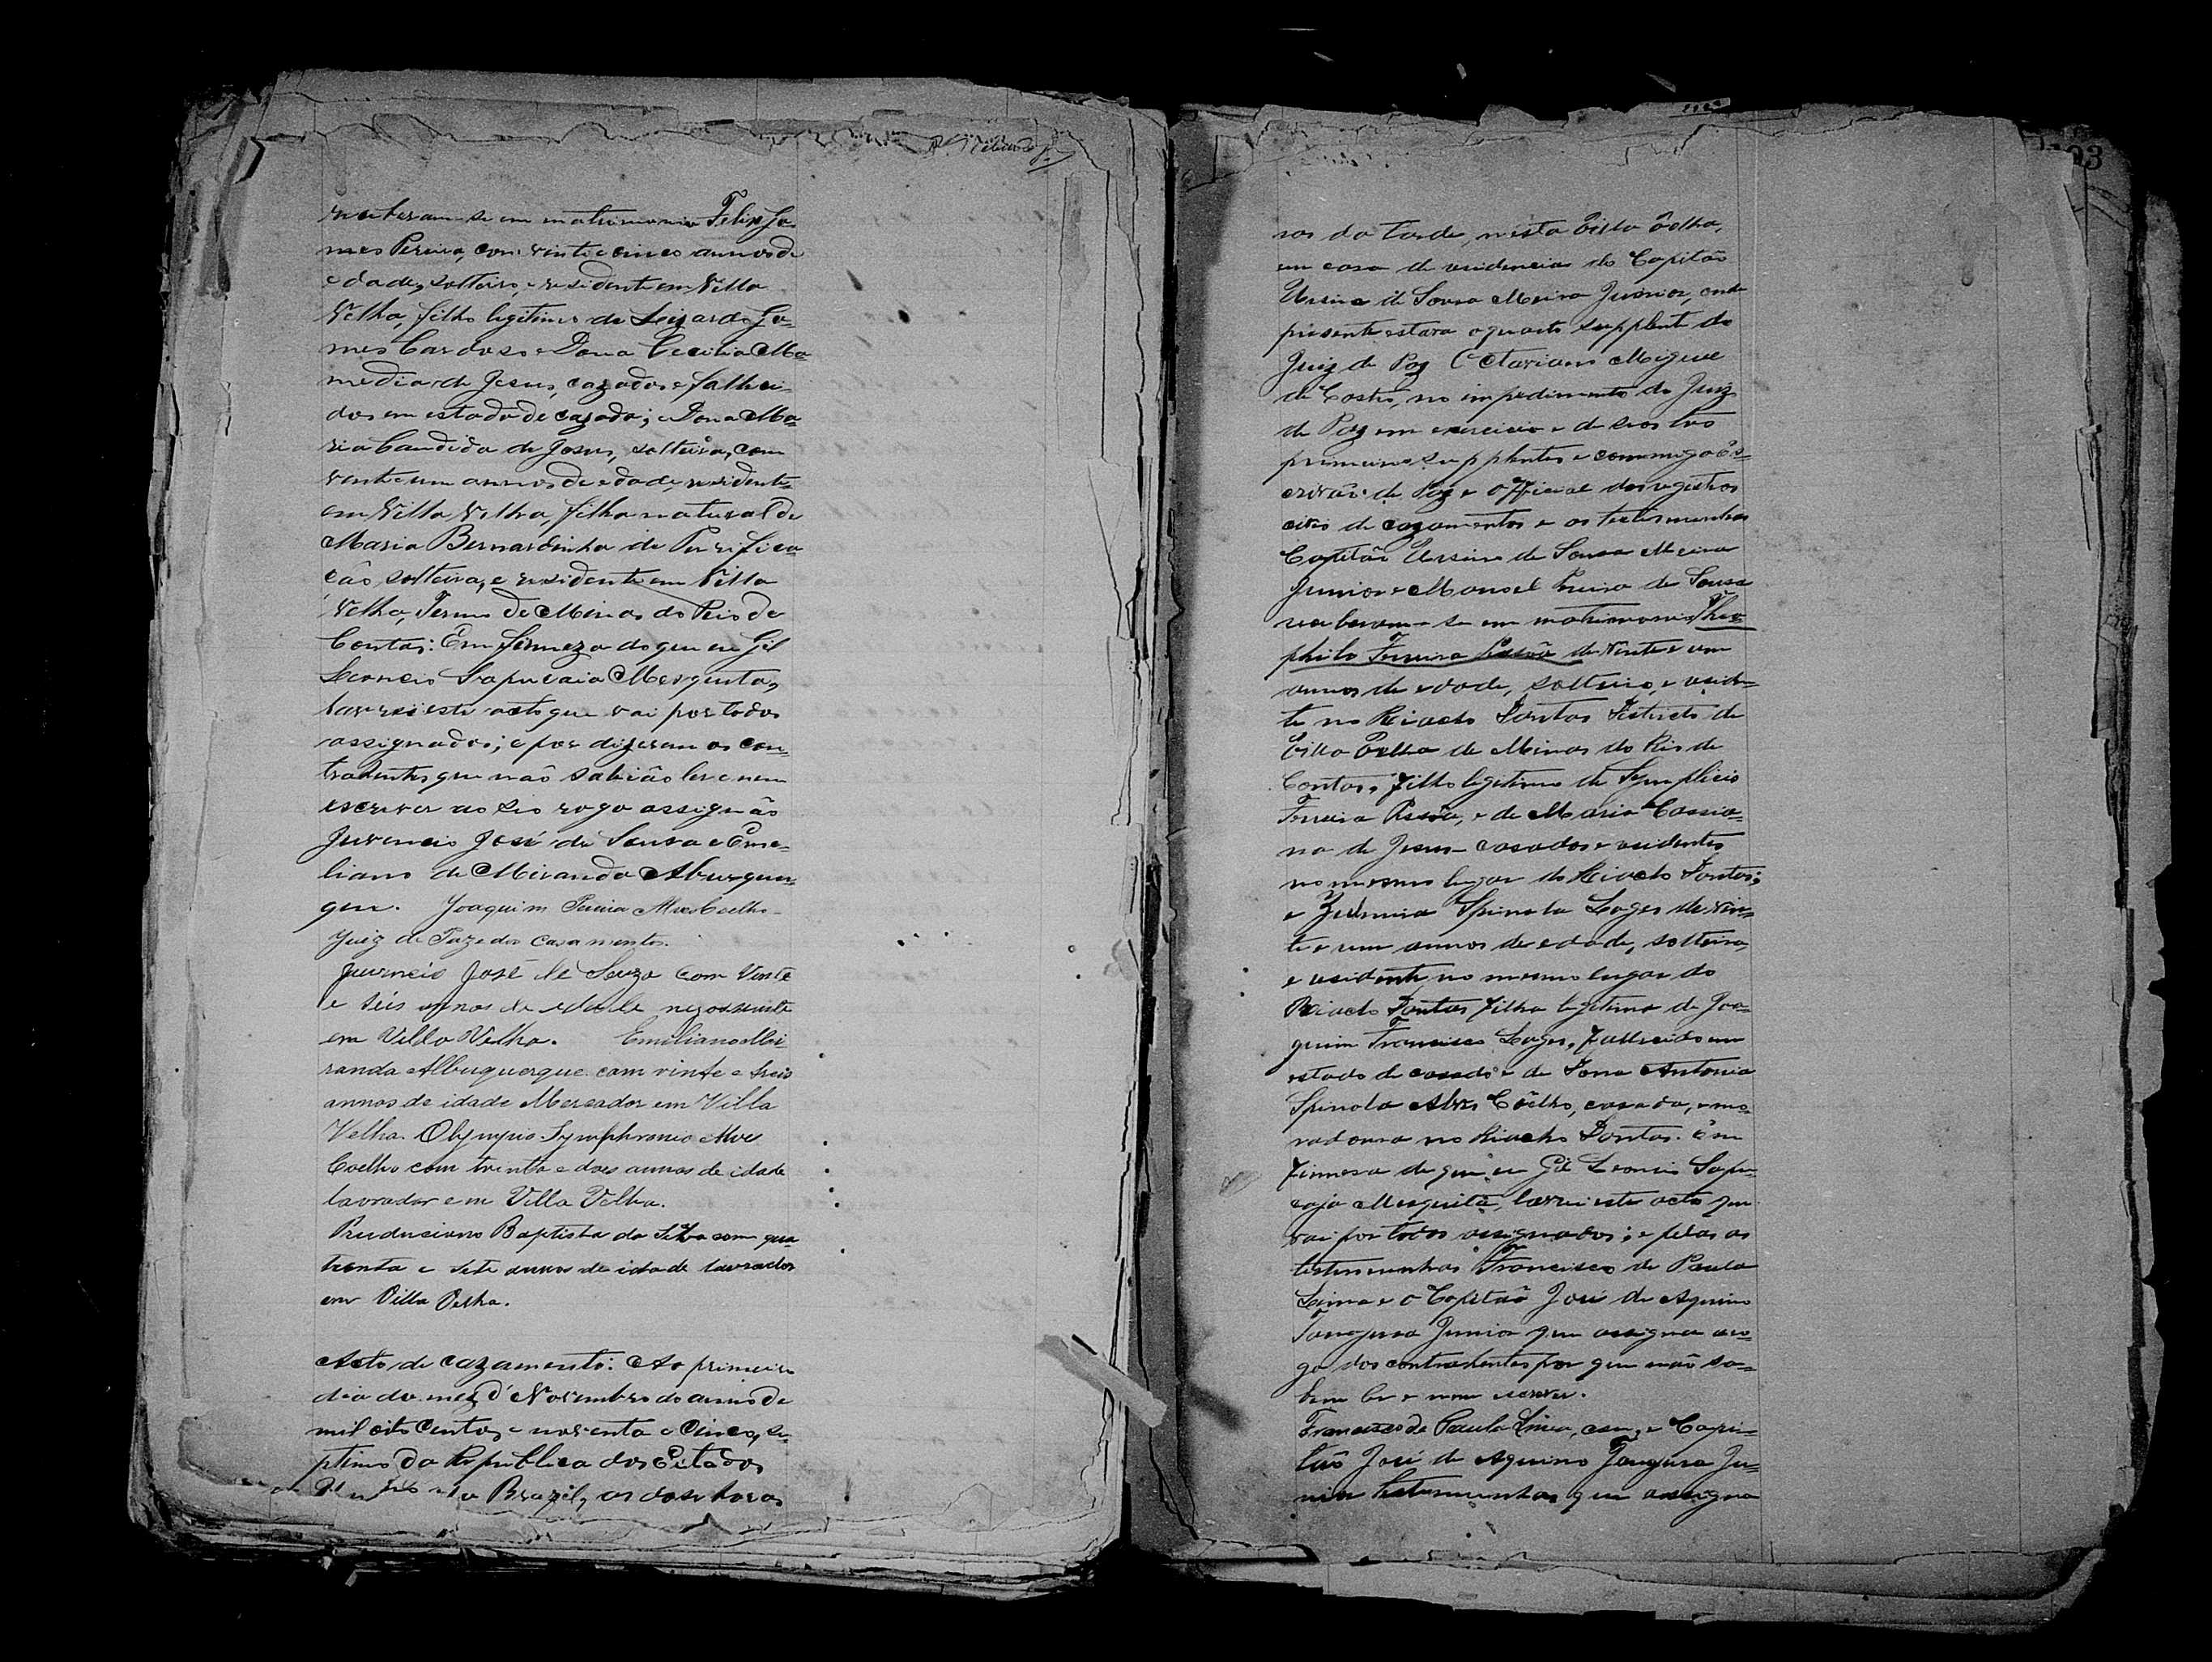 receberam-se em matrimonio Felix Go-
mes Pereira, com vinte e cinco annos de
edade, solteiro, e residente em Villa
Velha, filho legitimo de Lizardo Go-
mes Cardoso e Dona Cecilia Ma-
media de Jesus, cazados e falleci-
dos em estado de cazado; e Dona Ma-
ria Candida de Jesus, solteira, com
vinte um annos de edade, residente
em Villa Velha, filha natural de
Maria Bernardinha da Purifica-
cão solteira, e residente em Villa
Velha, Termo de Minas do Rio de
Contas: Em firmeza do que eu Gil
Leoncio Sapucaia Mesquita,
lavrei este acto que vai por todos
assignados; e por dizerem os con-
trahentes que não sabião ler e nem
escrever ao seo rogo assignão
Juvencio José de Sousa e Eme-
liano de Miranda Alburquer-
que. Joaquim Pereira Alves Coelho
Juiz de Paz e dos Casamentos.
Juvencio José de Souza com Vinte
e seis annos de edade negossiante
em Villa Velha. Emiliano Mi
randa Albuquerque com vinte e treis
annos de idade Mercador em Villa
Velha. Olympio Symphronio Alves
Coelho com trinta e dois annos de idade
lavrador em Villa Velha.
Pruduciano Baptista da Silva com qua
trenta e sete annos de idade lavrador
em Villa Velha.
Acto de cazamento: Ao primeiro
dia do mez d' Novembro do anno de
mil oito Centos e noventa e Cinco, se-
ptimo da Republica dos Estados
do Brazil, as dose horas
103
ras da tarde, nesta Villa Velha,
em casa de residencia do Capitão
Ursino de Sousa Meira Junior, onde
presente estava o quarto supplente do
Juiz de Paz Octaviano Miguel
de Castro, no impedimento do Juiz
de Paz em exercicio e de seos tres
primeiros supplentes e commigo Es-
crivão de Paz e Official dos registros
civis de cazamentos e as testemunhas
Capitão Ursino de Sousa Meira
Junior e Manoel Meira de Sousa
receberam-se em matrimonio Theo-
philo Ferreira de vinte e um
annos de edade, solteiro, e residen-
te no Riacho Fontas Districto de
Villa Velha de Minas do Rio de
Contas, filho legitimo de Symplicio
Ferreira e de Maria Cassia-
na de Jesus casados e residentes
no mesmo lugar do Riacho Fontas;
e Spinola Lages de vin-
te e um annos de edade, solteira,
e residente no mesmo lugar do
Riacho Fontas filha legitima de Joa-
quim Francisco Lages, fallecido em
estado de casado e de Dona Antonia
Spinola Alves Coêlho, casada, e mo-
radoura no Riacho Fontas. Em
firmesa do que, eu Gil Leoncio Sapu-
caja Mesquita, lavrei este acto que
vai por todos assignados; e pelas as
testemunhas Francisco de Paula
Lima e o Capitão José de Aquino
Tanajura Junior que assigna a ro-
go dos contrahentes por que não sa-
bem ler e nem escrever.
Francisco de Paula Lima, com, e Capi-
tão José de Aquino Tanajura Ju-
nior testemunhas que assigna